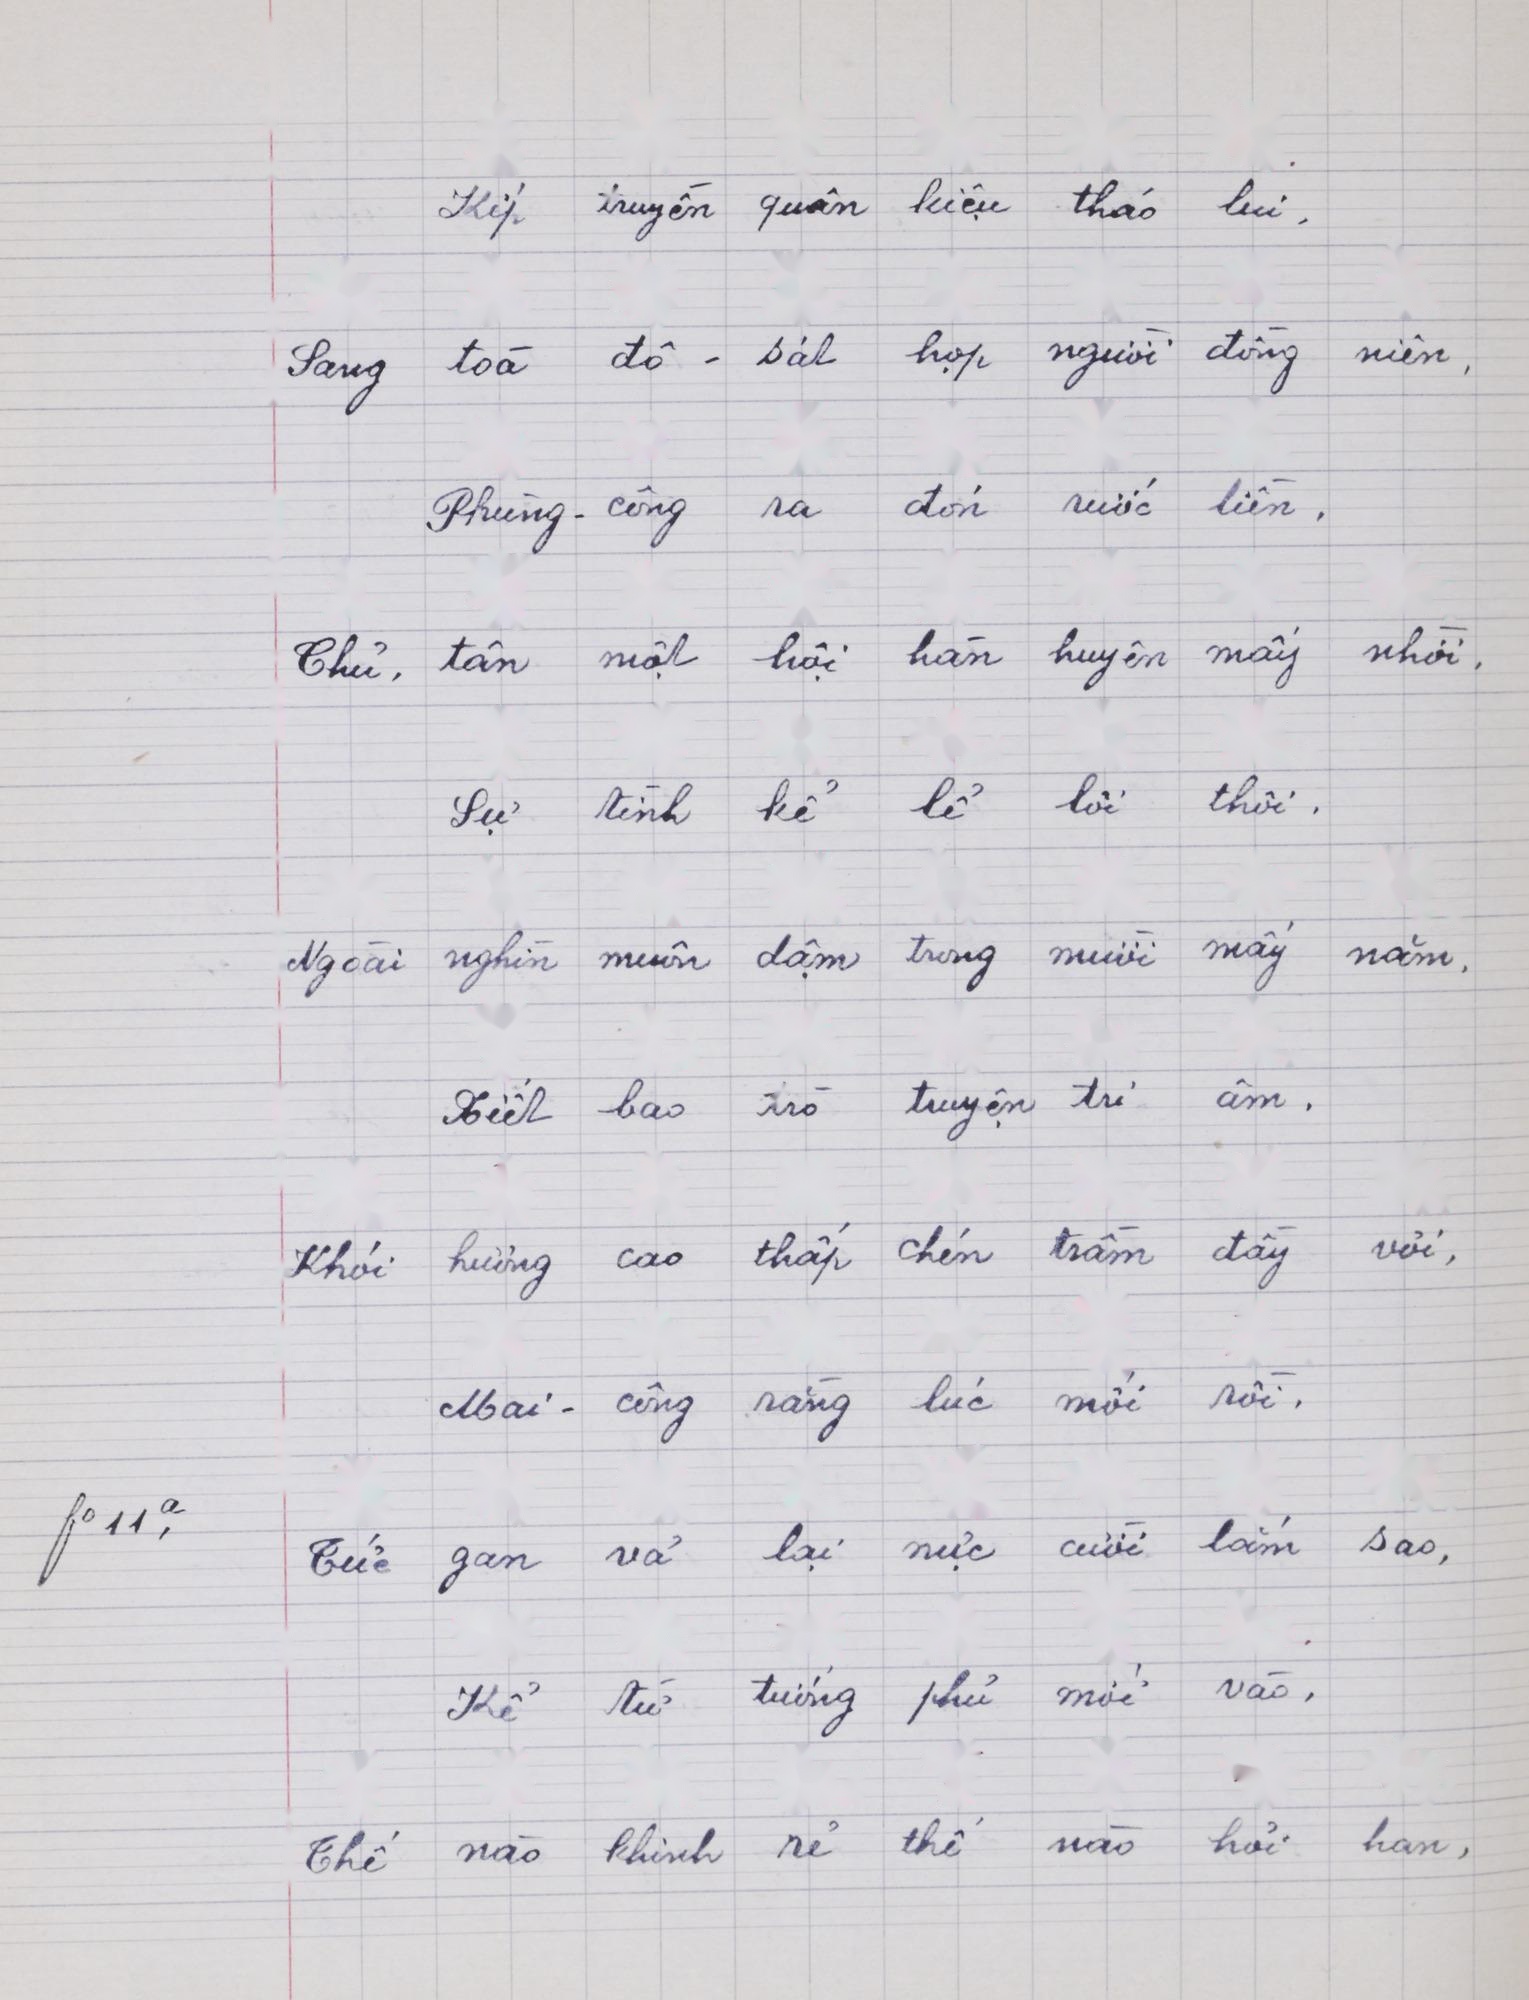 Kíp truyền quân kiệu tháo lui,
Sang toà đô - sát họp người đồng niên,
Phùng - công ra đón rước liền,
Chủ, tân một hội hàn huyên mấy nhời,
Sự tình kể lể lôi thôi,
Ngoài nghìn muôn dậm trong mười mấy năm,
Xiết bao trò truyện tri âm,
Khói hương cao thấp chén trầm đầy vơi,
Mai - công rằng lúc mới rồi,
fº 11ª,
Tức gan vả lại nực cười lắm sao,
Kể từ tướng phủ mới vào,
Thế nào khinh rẻ thế nào hỏi han,